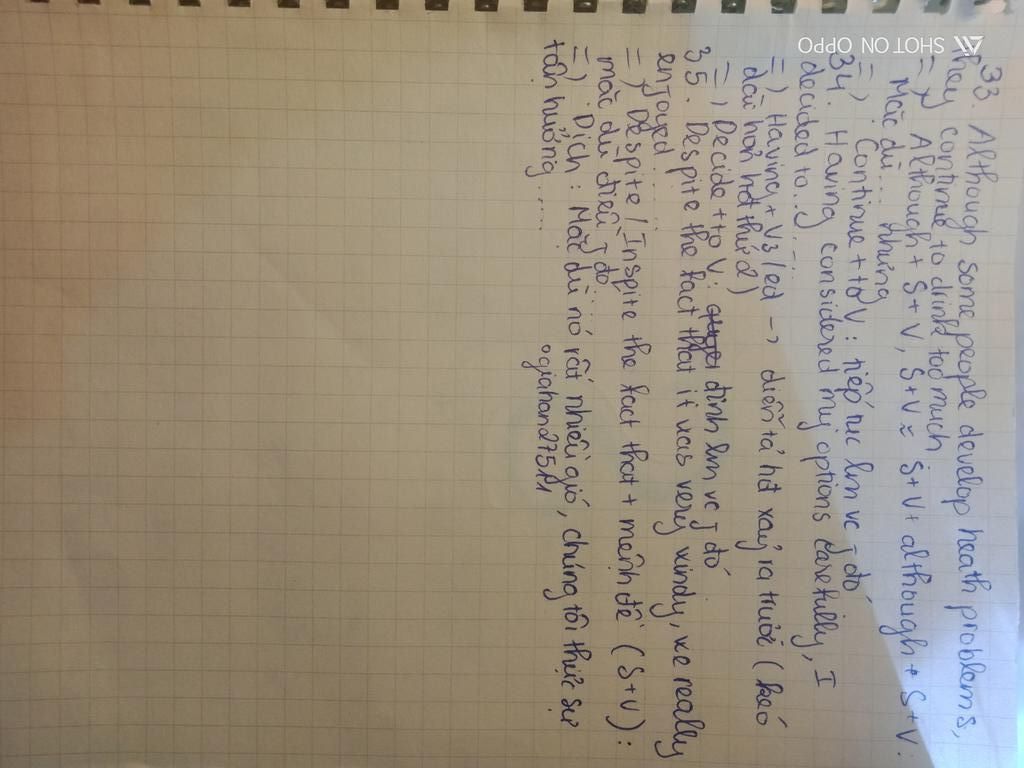 33. Although some people develop heath problems,
they continue to drink too much
=> Although + S + V, S + V ≈ S + V + although + S + V.
Mặc dù... nhưng
=> Continue + to V : tiếp tục làm vc j đó
34. Having considered my options carefully, I
decided to...
=> Having + V3/ed -> diễn tả hđ xảy ra trước (kéo
dài hơn hđ thứ 2)
=> Decide + to V: định làm vc j đó
35. Despite the fact that it was very windy, we really
enjoyed......
=> Despite / Inspite the fact that + mệnh đề (S+V) :
mặc dù điều j đó
=> Dịch : Mặc dù nó rất nhiều gió, chúng tôi thực sự
tận hưởng .....
ogiahand75h1
SHOT ON OPPO